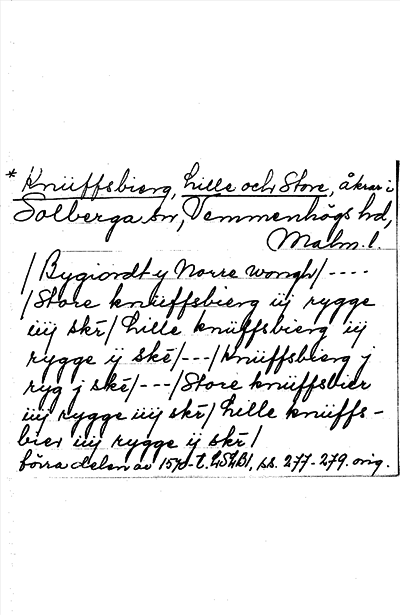 * Knüffsbierg, Lille och Store, åkrar i
Solberga sn, Vemmenhögs hd,
Malm. l.
/Bygiordt y Norre wongh/ ----
/Store knüffsbierg iij rygge
iiij skr/ Lille knüffsbierg iij
rygge ij ske/ --- /Knüffsbierg j
ryg j ske/ --- /Store knüffsbier
iiij rygge iiij skr/ Lille knüffs-
bier iiij rygge ij skr/
förra delen av 1570-t. LSLB1, ss. 277-279. orig.